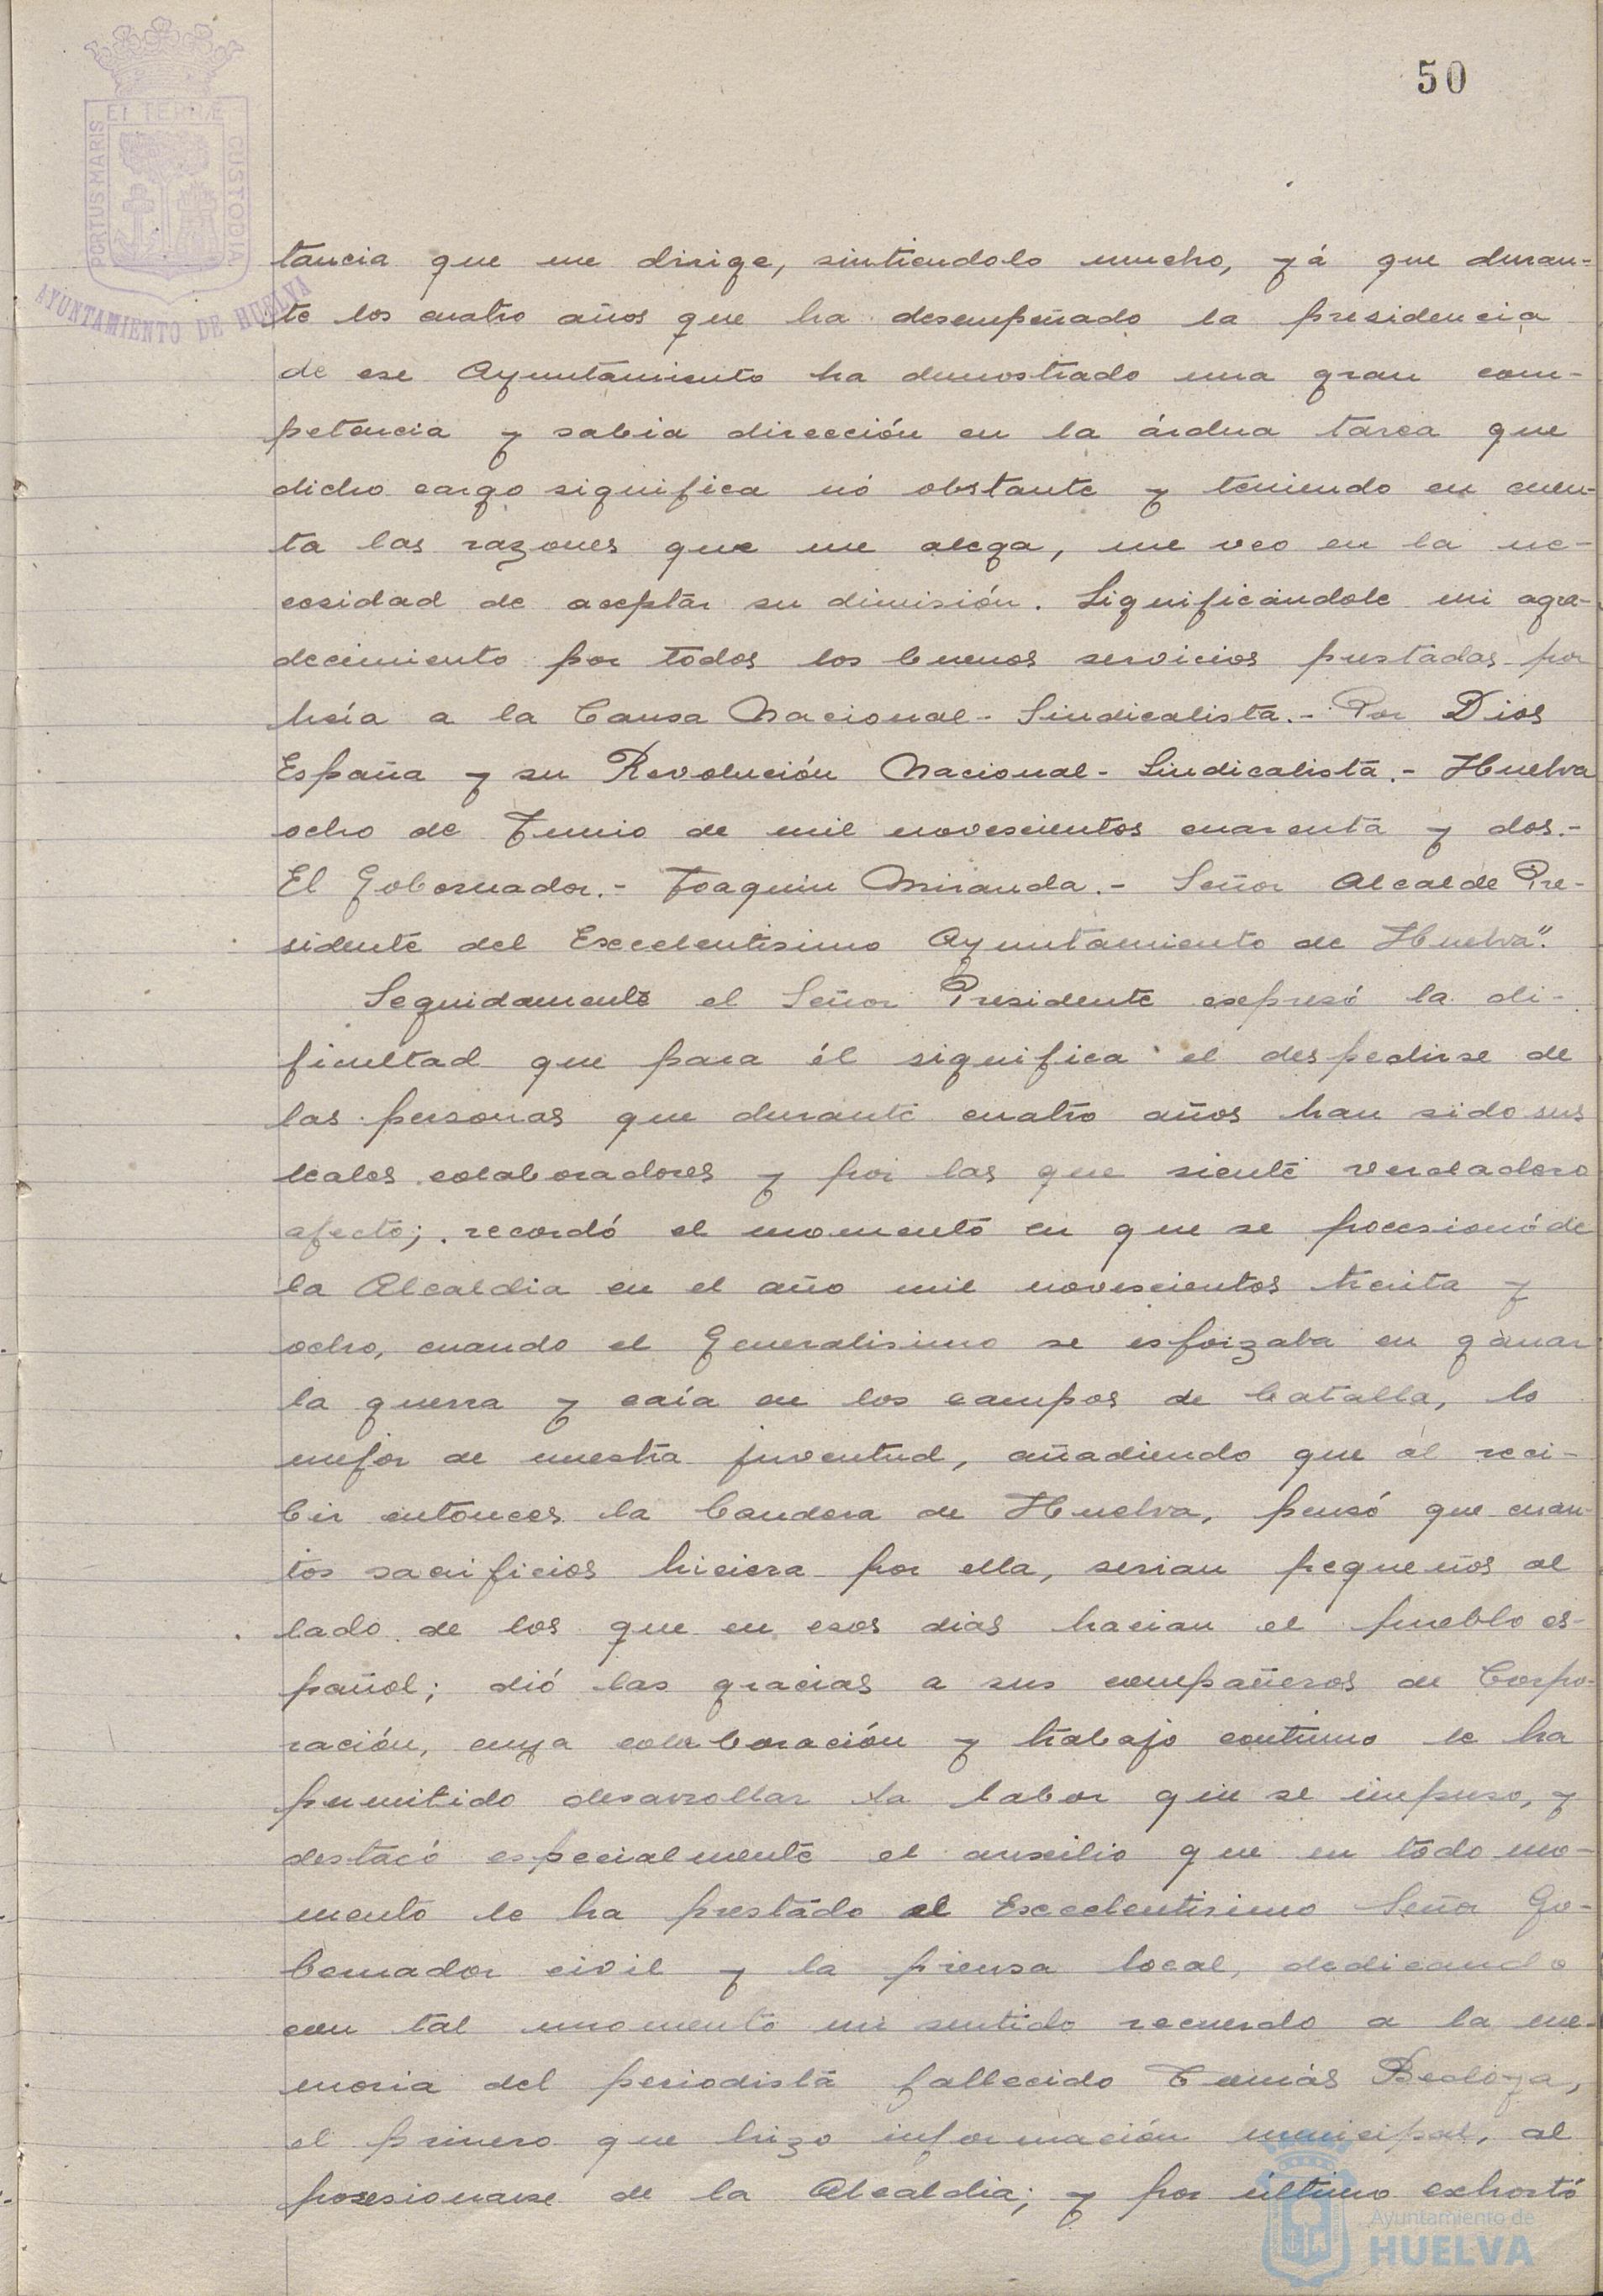 50
PORTUS MARIS ET TERRÆ CUSTODIA
AYUNTAMIENTO DE HUELVA
tancia que me dirige, sintiendolo mucho, yá que duran-
te los cuatro años que ha desempeñado la presidencia
de ese Ayuntamiento ha demostrado una gran com-
petencia y sabia dirección en la árdua tarea que
dicho cargo significa nó obstante y teniendo en cuen-
ta las razones que me alega, me veo en la ne-
cesidad de aceptar su dimisión. Significándole mi agra-
decimiento por todos los buenos servicios prestados por
hacía a la Causa Nacional-Sindicalista.- Por Dios
España y su Revolución Nacional-Sindicalista.- Huelva
ocho de Junio de mil novescientos cuarenta y dos.-
El Gobernador.- Joaquin Miranda.- Señor Alcalde Pre-
sidente del Excelentisimo Ayuntamiento de Huelva".
Seguidamente el Señor Presidente expresó la di-
ficultad que para él significa el despedirse de
las personas que durante cuatro años han sido sus
leales colaboradores y por las que siente verdadero
afecto; recordó el momento en que se posesionó de
la Alcaldia en el año mil novescientos treinta y
ocho, cuando el Generalisimo se esforzaba en ganar
la guerra y caía en los campos de batalla, lo
mejor de nuestra juventud, añadiendo que al reci-
bir entonces la bandera de Huelva, pensó que cuan-
tos sacrificios hiciera por ella, serian pequeños al
lado de los que en esos dias hacian el pueblo es-
pañol; dió las gracias a sus compañeros de Corpo-
ración, cuya colaboración y trabajo continuo le ha
permitido desarrollar la labor que se impuso, y
destacó especialmente el auxilio que en todo mo-
mento le ha prestado el Excelentisimo Señor Go-
bernador civil y la prensa local, dedicando
con tal momento un sentido recuerdo a la me-
moria del periodista fallecido Tomás Bedoya,
el primero que hizo información municipal, al
posesionarse de la Alcaldia; y por último exhortó
Ayuntamiento de
HUELVA